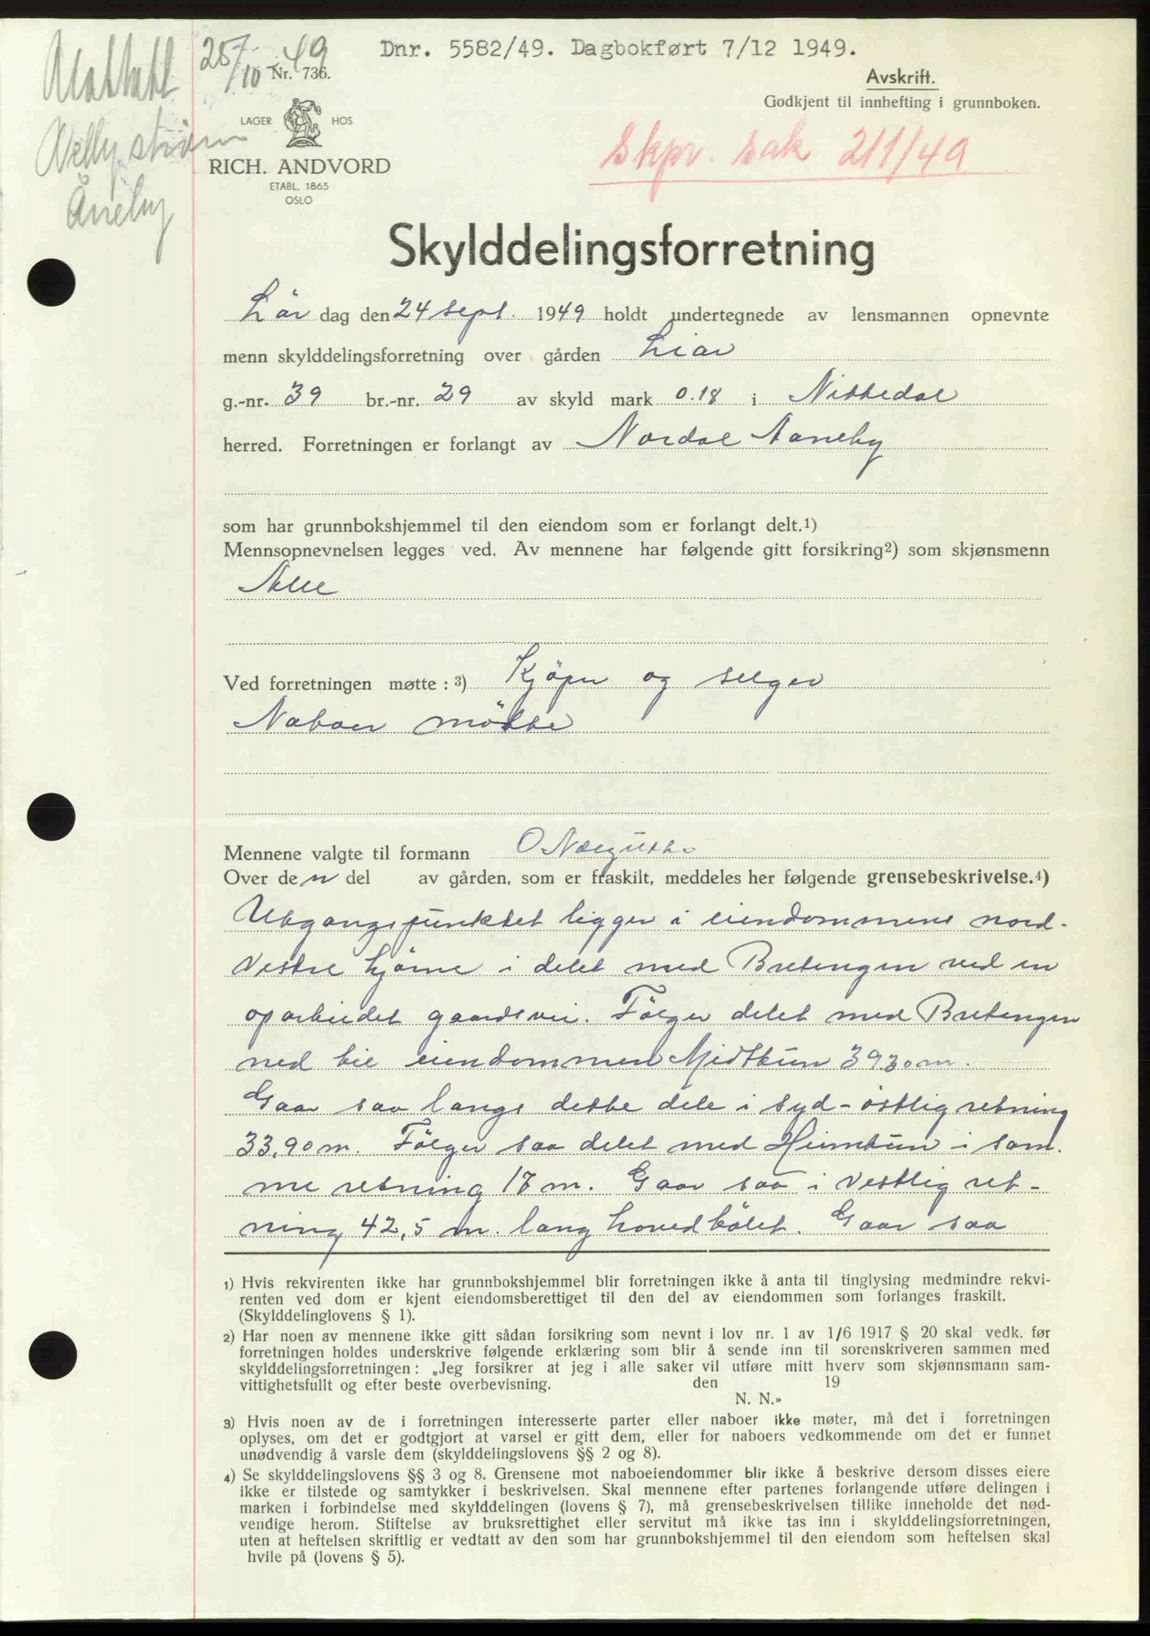 25/10 49
Dnr. 5582/49. Dagbokført 7/12 1949.
Nr. 736.
Avskrift.
Godkjent til innhefting i grunnboken.
LAGER HOS
Skpr. sak 211/49
RICH. ANDVORD
ETABL. 1865
OSLO
Åneby
Skylddelingsforretning
Lör dag den 24 sept. 1949 holdt undertegnede av lensmannen opnevnte
menn skylddelingsforretning over gården Liar
g.-nr. 39 br.-nr. 29 av skyld mark 0.18 i Nittedal
herred. Forretningen er forlangt av Nordal Aaneby
som har grunnbokshjemmel til den eiendom som er forlangt delt.1)
Mennsopnevnelsen legges ved. Av mennene har følgende gitt forsikring2) som skjønsmenn
Alle
Ved forretningen møtte : 3) Kjöper og selger
Naboer mötte
Mennene valgte til formann O
Over den del av gården, som er fraskilt, meddeles her følgende grensebeskrivelse.4)
Utgangspunktet ligger i eiendommens nord-
vestre hjörne i delet med Bretengen ved en
oparbeidet gaardsvei. Fölger delet med Bretengen
ned til eiendommen Midttun 39.30 m.
Gaar saa langs dette dele i syd-östlig retning
33,90 m. Fölger saa delet med Heimtun i sam-
me retning 17 m. Gaar saa i vestlig ret-
ning 42,5 m. lang hovedbölet. Gaar saa
1) Hvis rekvirenten ikke har grunnbokshjemmel blir forretningen ikke å anta til tinglysing medmindre rekvi-
renten ved dom er kjent eiendomsberettiget til den del av eiendommen som forlanges fraskilt.
(Skylddelinglovens § 1).
2) Har noen av mennene ikke gitt sådan forsikring som nevnt i lov nr. 1 av 1/6 1917 § 20 skal vedk. før
forretningen holdes underskrive følgende erklæring som blir å sende inn til sorenskriveren sammen med
skylddelingsforretningen : „Jeg forsikrer at jeg i alle saker vil utføre mitt hverv som skjønnsmann sam-
vittighetsfullt og efter beste overbevisning. den 19
N. N.»
3) Hvis noen av de i forretningen interesserte parter eller naboer ikke møter, må det i forretningen
oplyses, om det er godtgjort at varsel er gitt dem, eller for naboers vedkommende om det er funnet
unødvendig å varsle dem (skylddelingslovens §§ 2 og 8).
4) Se skylddelingslovens §§ 3 og 8. Grensene mot naboeiendommer blir ikke å beskrive dersom disses eiere
ikke er tilstede og samtykker i beskrivelsen. Skal mennene efter partenes forlangende utføre delingen i
marken i forbindelse med skylddelingen (lovens § 7), må grensebeskrivelsen tillike inneholde det nød-
vendige herom. Stiftelse av bruksrettighet eller servitut må ikke tas inn i skylddelingsforretningen,
uten at heftelsen skriftlig er vedtatt av den som har grunnbokshjemmel til den eiendom som heftelsen skal
hvile på (lovens § 5).